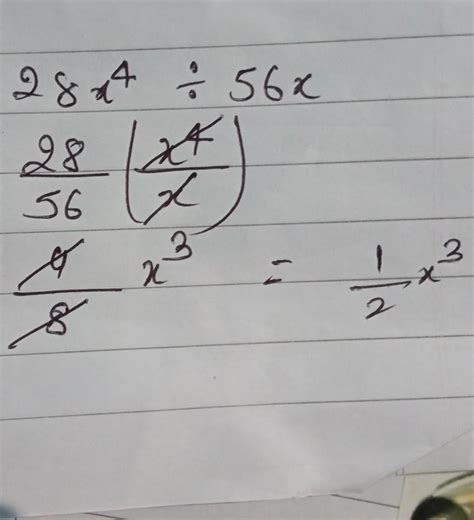 28x⁴ ÷ 56x
28/56 (x⁴/x)
4/8 x³ = 1/2 x³